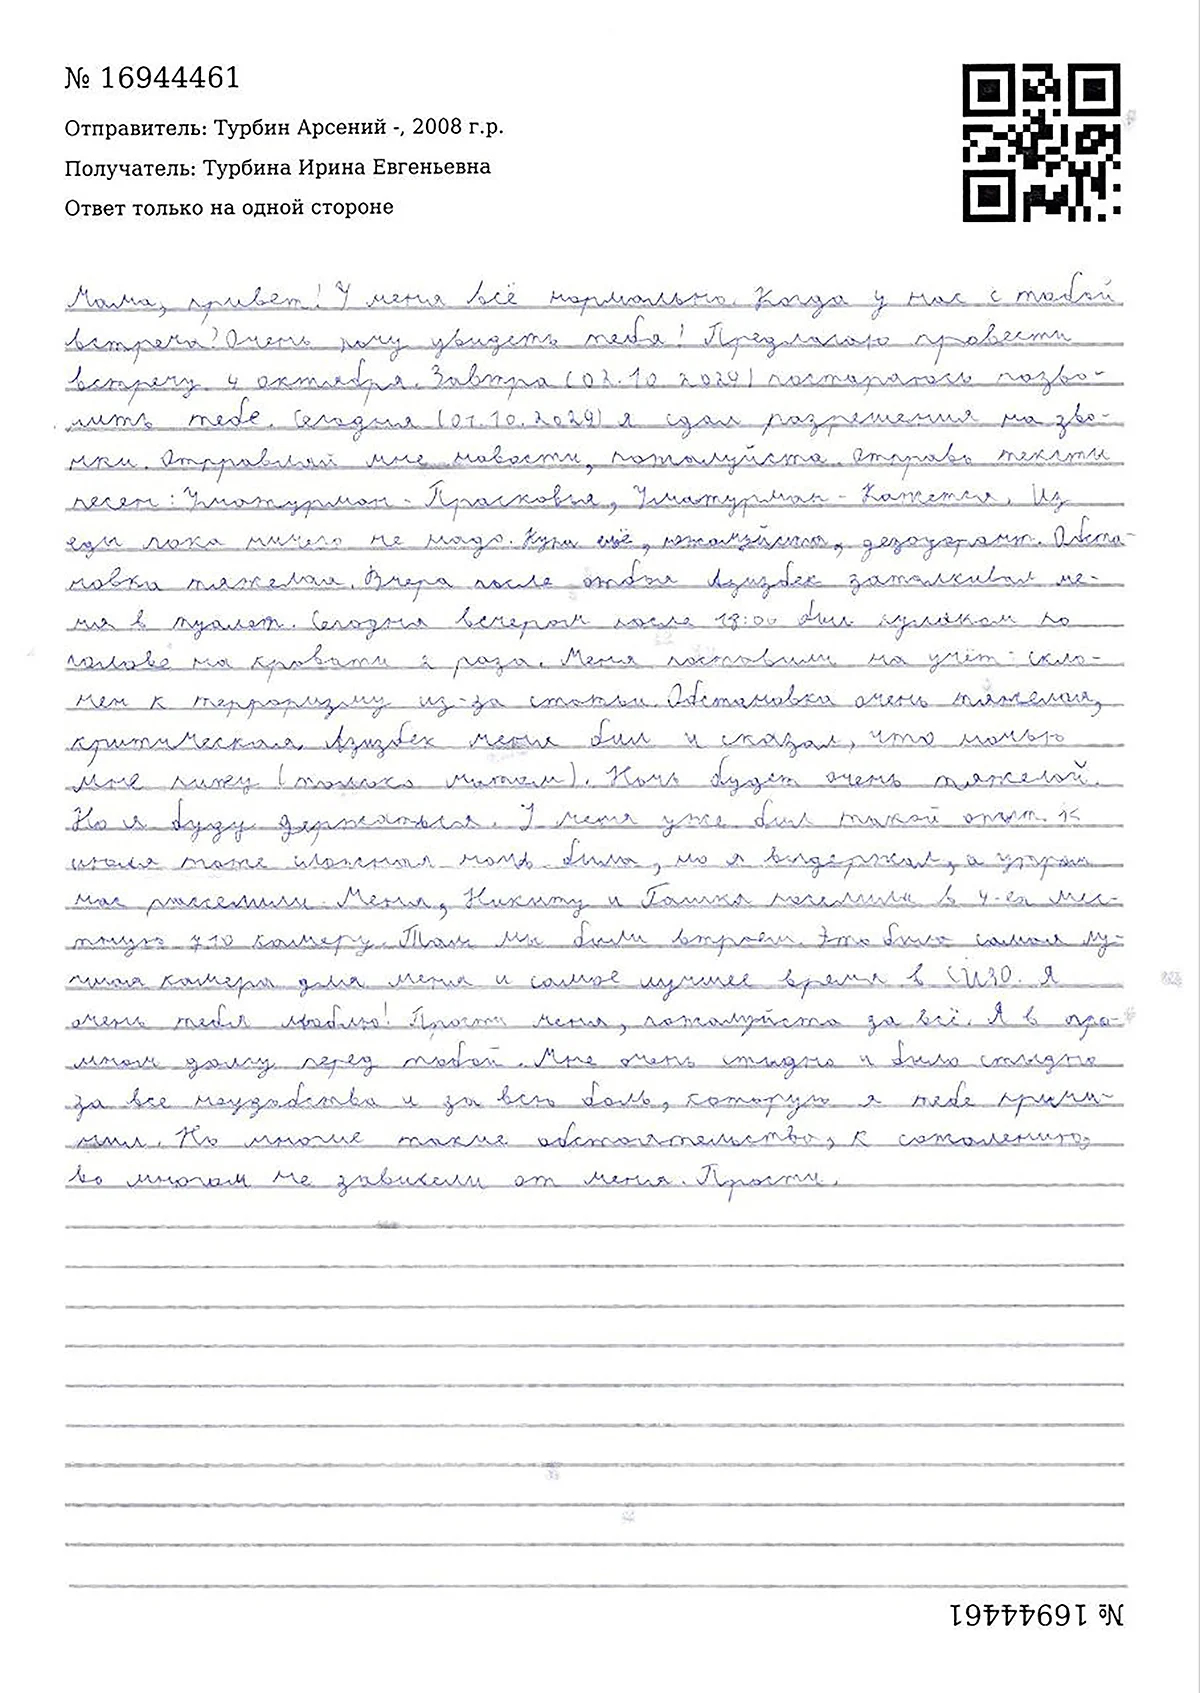 № 16944461
Отправитель: Турбин Арсений -, 2008 г.р.
Получатель: Турбина Ирина Евгеньевна
Ответ только на одной стороне
Мама, привет! У меня всё нормально. Когда у нас с тобой
встреча? Очень хочу увидеть тебя! Предлагаю провести
встречу 4 октября. Завтра (02.10.2024) постараюсь позво-
нить тебе. Сегодня (01.10.2024) я сдал разрешения на зво-
нки. Отправляй мне новости, пожалуйста. Отправь тексты
песен: Уматурман - Прасковья, Уматурман - Кажется. Из
еды пока ничего не надо. Купи ещё, пожалуйста, дезодорант. Обста-
новка тяжелая. Вчера после отбоя Азизбек заталкивал ме-
ня в туалет. Сегодня вечером после 18:00 бил кулаком по
голове на кровати 2 раза. Меня поставили на учёт: скло-
нен к терроризму из-за статьи. Обстановка очень тяжелая,
критическая. Азизбек меня бил и сказал, что ночью
мне пизу (только матом). Ночь будет очень тяжелой.
Но я буду держаться. У меня уже был такой опыт. К
июля тоже сложная ночь была, но я выдержал, а утром
нас расселили. Меня, Никиту и Пашка поселили в 4-ех мес-
тную 710 камеру. Там мы были втроем. Это была самая лу-
чшая камера для меня и самое лучшее время в СИЗО. Я
очень тебя люблю! Прости меня, пожалуйста за всё. Я в огро-
мном долгу перед тобой. Мне очень стыдно и было стыдно
за все неудобства и за всю боль, которую я тебе причи-
нил. Но многие такие обстоятельства, к сожалению,
во многом не зависели от меня. Прости.
№ 16944461